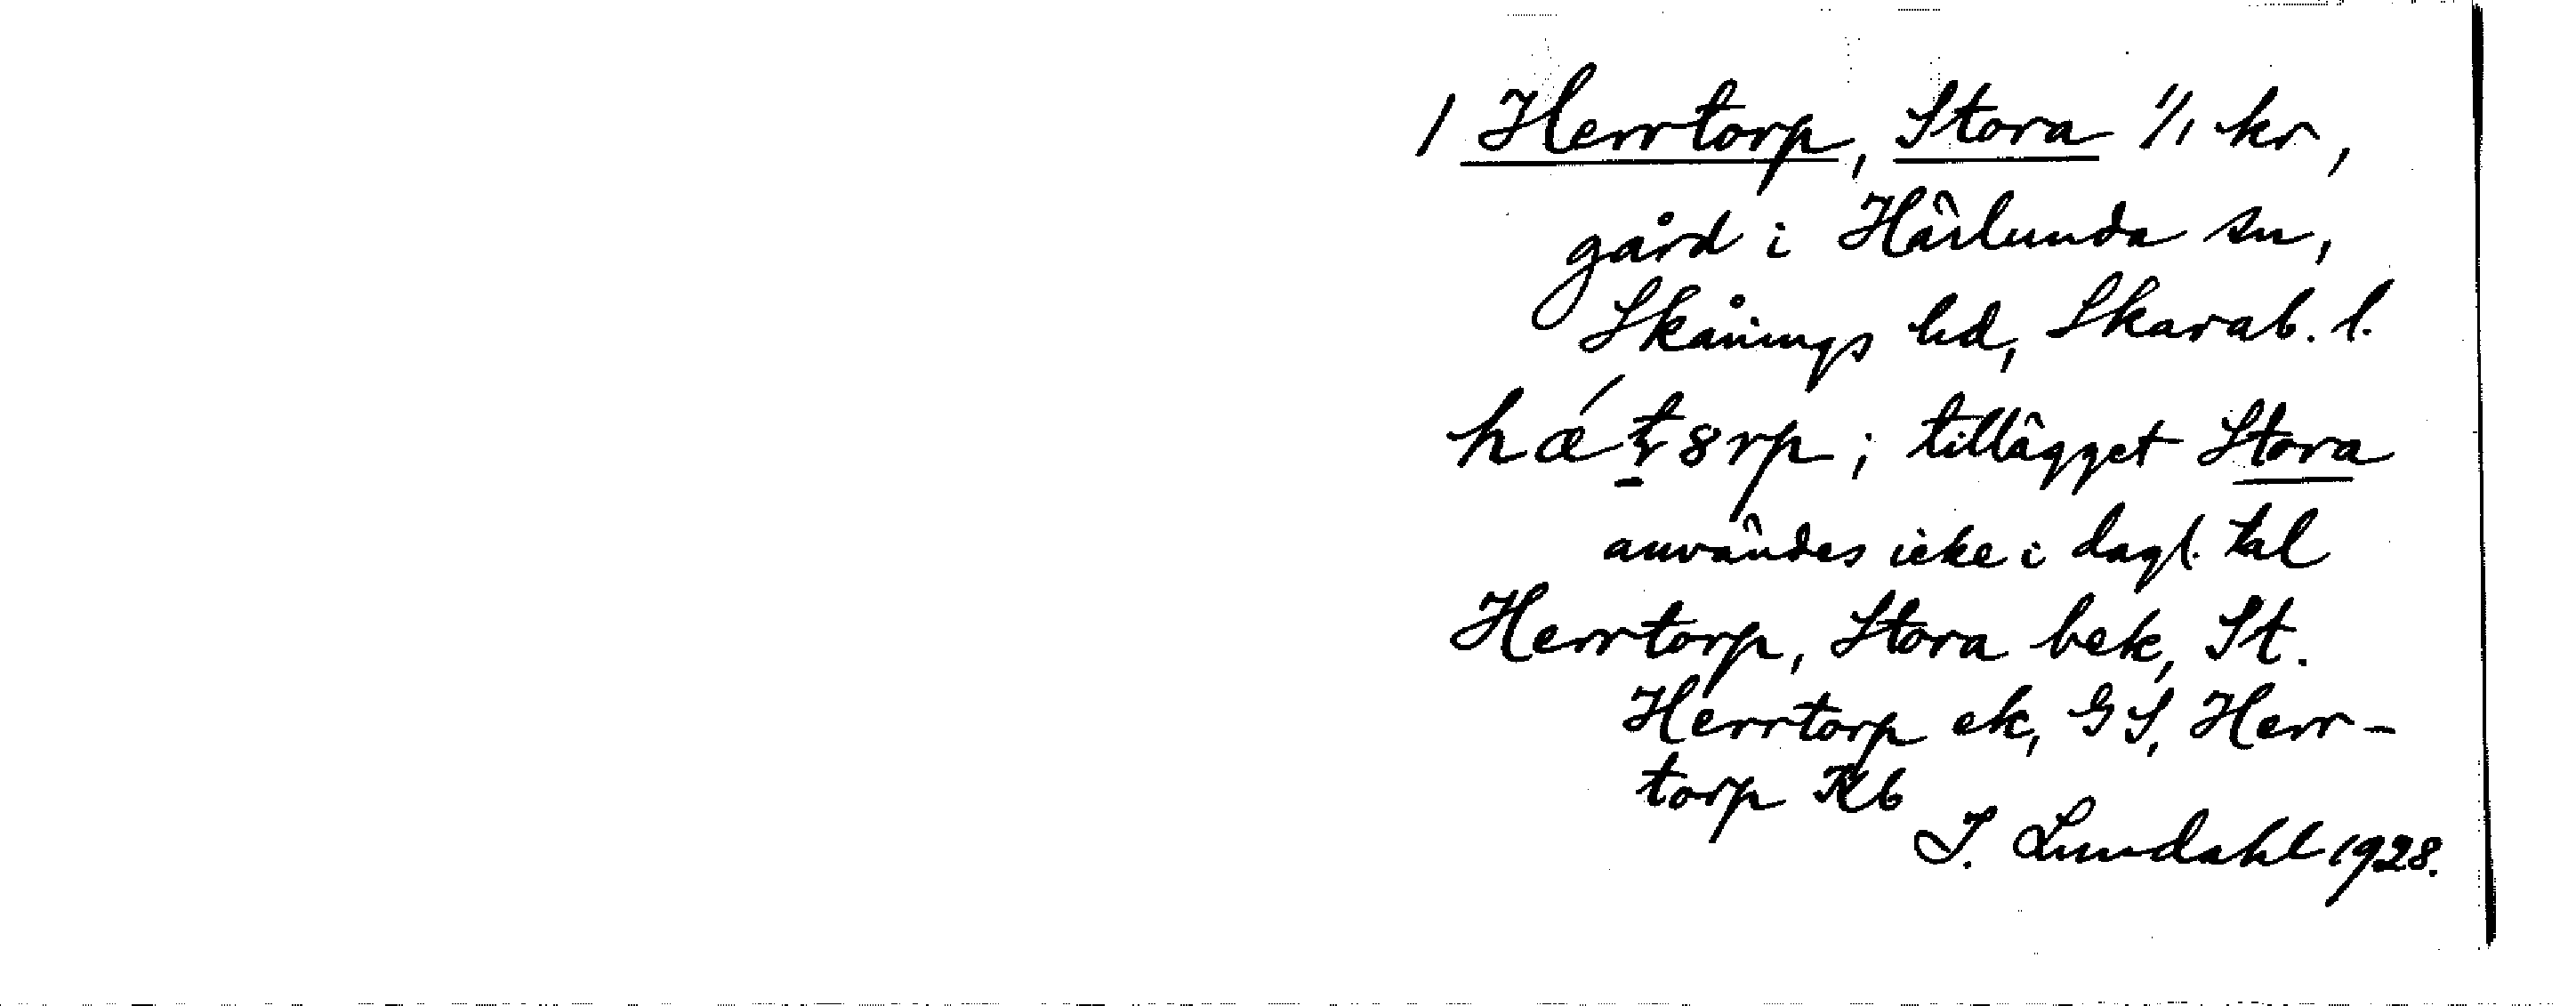 1 Herrtorp, Stora 1/1 kr,
gård i Härlunda sn,
Skånings hd, Skarab. l.
tillägget Stora
användes icke i dagl. tal
Herrtorp, Stora bek, St.
Herrtorp ek, GS, Herr-
torp Kb
I. Lundahl 1928.